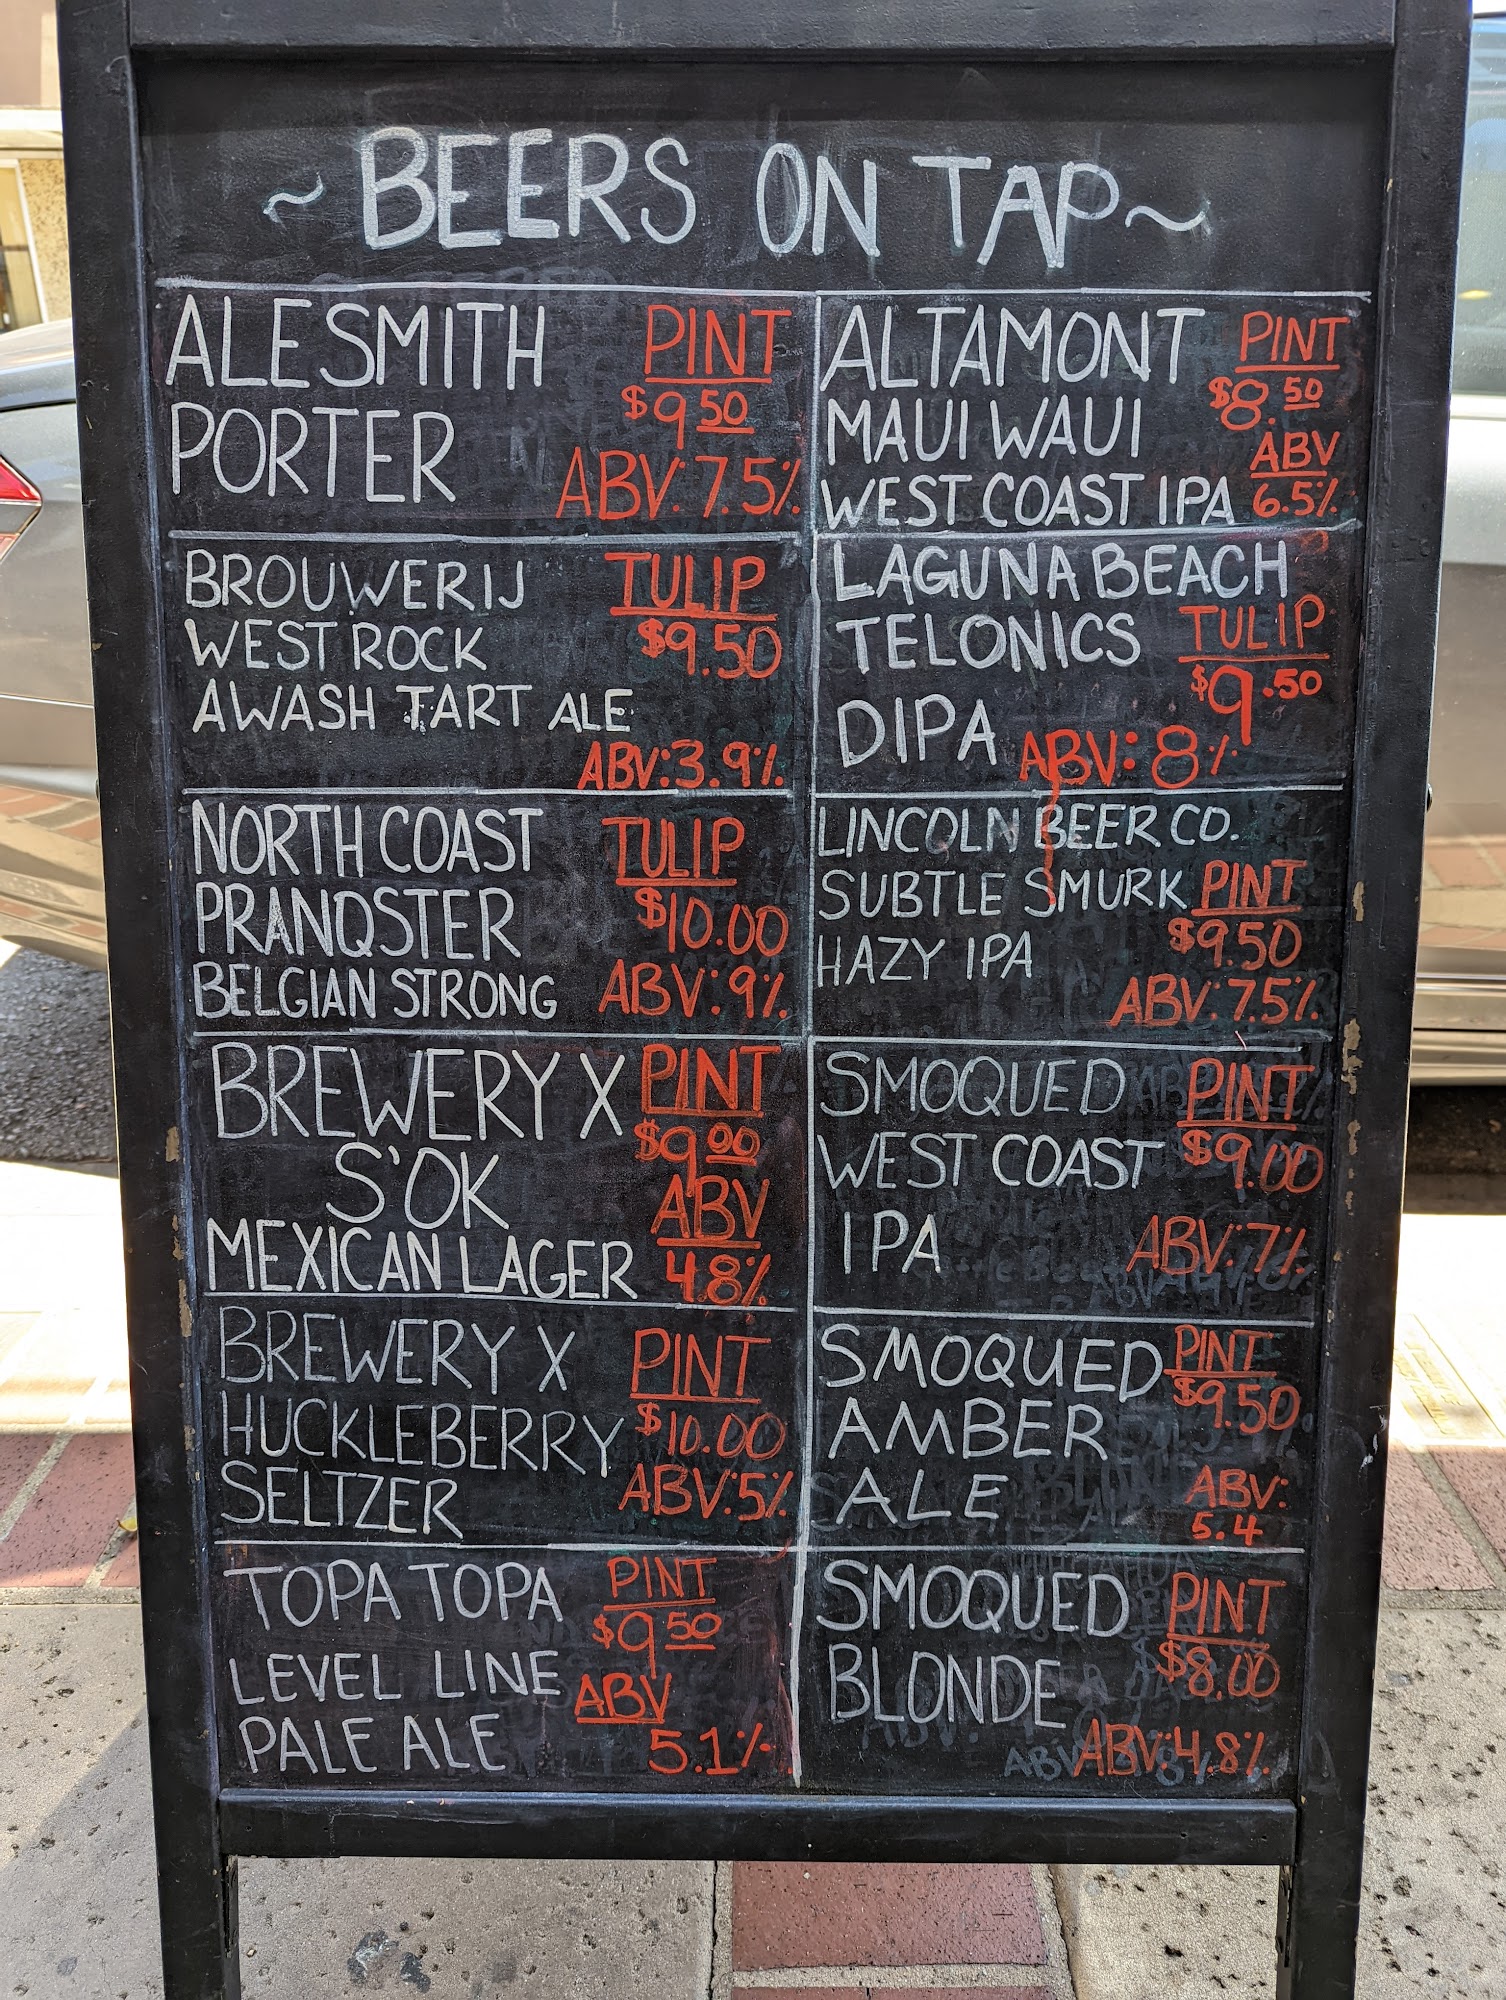 ~ BEERS ON TAP ~
ALESMITH
PORTER
PINT
$9.50
ABV: 7.5%
ALTAMONT
MAUI WAUI
WEST COAST IPA
PINT
$8.50
ABV
6.5%
BROUWERIJ
WEST ROCK
AWASH TART ALE
TULIP
$9.50
ABV: 3.9%
LAGUNA BEACH
TELONICS
DIPA
TULIP
$9.50
ABV: 8%
NORTH COAST
PRANQSTER
BELGIAN STRONG
TULIP
$10.00
ABV: 9%
LINCOLN BEER CO.
SUBTLE SMURK
HAZY IPA
PINT
$9.50
ABV: 7.5%
BREWERY X
S'OK
MEXICAN LAGER
PINT
$9.00
ABV
4.8%
SMOQUED
WEST COAST
IPA
PINT
$9.00
ABV: 7%
BREWERY X
HUCKLEBERRY
SELTZER
PINT
$10.00
ABV: 5%
SMOQUED
AMBER
ALE
PINT
$9.50
ABV:
5.4
TOPA TOPA
LEVEL LINE
PALE ALE
PINT
$9.50
ABV
5.1%
SMOQUED
BLONDE
PINT
$8.00
ABV: 4.8%